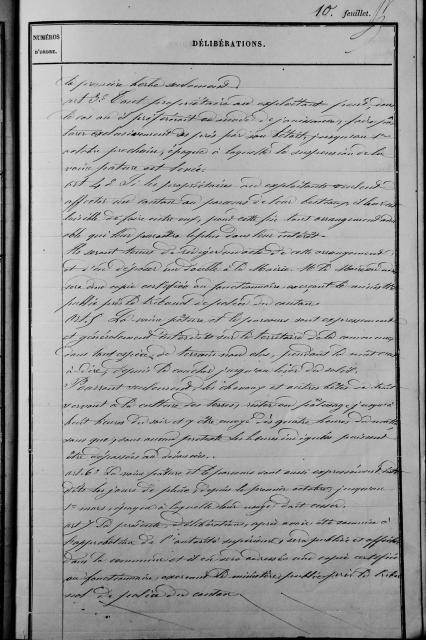 10. feuillet.
NUMÉROS
D'ORDRE.
DÉLIBÉRATIONS.
la première herbe seulement.
art 3. Tout propriétaire ou exploitant pourra, dans
le cas où il préférerait ce mode de jouissance, faire pâ-
turer exclusivement ses prés par son bétail, jusqu'au 1er
octobre prochain, époque à laquelle la suspension de la
vaine pâture est levée.
art 4. Si les propriétaires ou exploitants veulent
affecter un canton au parcours de leur bestiaux, il leur est
loisible de faire entre eux, pour cette fin tout arrangement
qui leur paraîtra le plus dans leur intérêt.
Ils seront tenus de rédiger un acte de cet arrangement
et d'en déposer un double à la Mairie.
sera une copie certifiée au fonctionnaire exerçant le ministère
public près le tribunal de police du canton.
Art. 5 La vaine pâture et le parcours sont expressément
et généralement interdits sur le territoire de la commune
dans toute espèce de terrain non clos, pendant la nuit c'est
à dire, depuis le coucher jusqu'au lever du soleil.
Pourront seulement, les chevaux et autres bêtes de trait
servant à la culture des terres, rester au pâturage jusqu'à
huit heures du soir et y être envoyé dès quatre heures du matin
sans que, sans aucun prétexte les heures indiquées puissent
être dépassées ou devancées.
art. 6. La vaine pâture et le parcours sont aussi expressément inter-
dits les jours de pluie, depuis le premier octobre, jusqu'au
1er mars, époque à laquelle leur usage doit cesser.
art 7 La présente délibération, après avoir été soumise à
l'approbation de l'autorité supérieure, sera publiée et affichée
dans la commune et il en sera adressée une copie certifiée
au fonctionnaire, exerçant le ministère public près le Tribu-
nal de police du canton